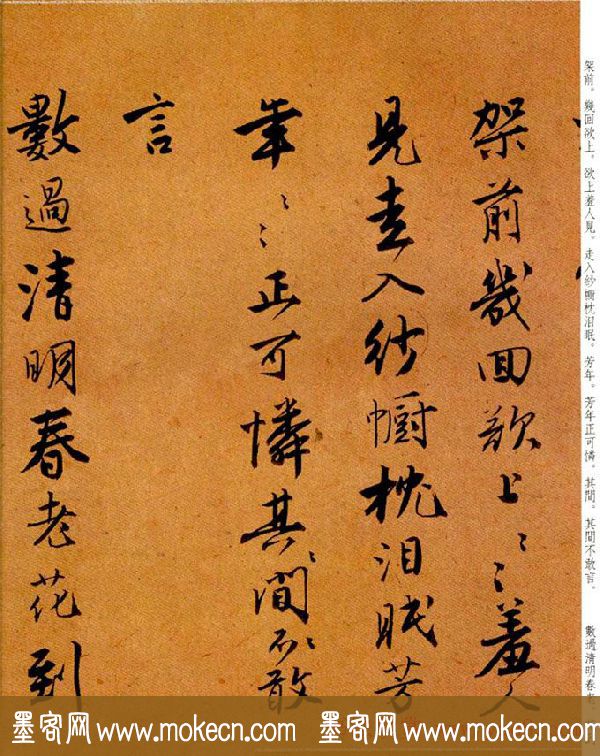 架前幾回欲上〻〻羞人
見走入紗幮枕泪眠芳
年〻〻正可憐其〻間〻不敢
言
數過清明春老花到
架前。幾回欲上。欲上羞人見。走入紗幮枕泪眠。芳年。芳年正可憐。其間。其間不敢言。 數過清明春老。
墨客网 www.mokecn.com 墨客网 www.mokecn.com